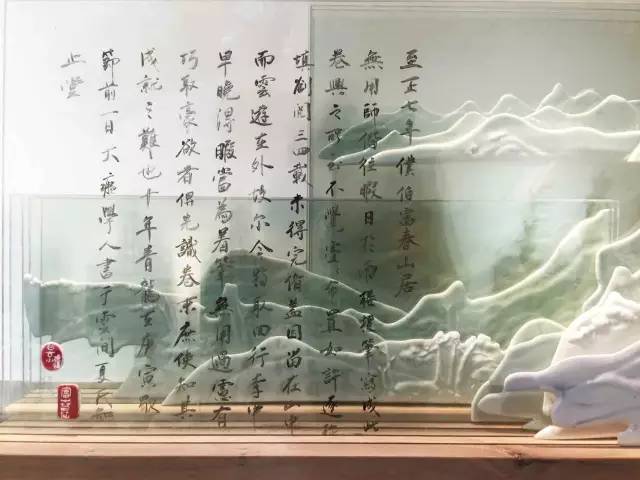 至正七年僕歸富春山居
無用師偕往暇日於南樓援筆寫成此
卷興之所至不覺亹亹布置如許逐旋
填劄閱三四載未得完備蓋因留在山中
而雲遊在外故尔今特取回行李中
早晚得暇當為著筆無用過慮有
巧取豪敚者俾先識卷末庶使知其
成就之難也十年青龍在庚寅歜
節前一日大癡學人書于雲間夏氏知
止堂